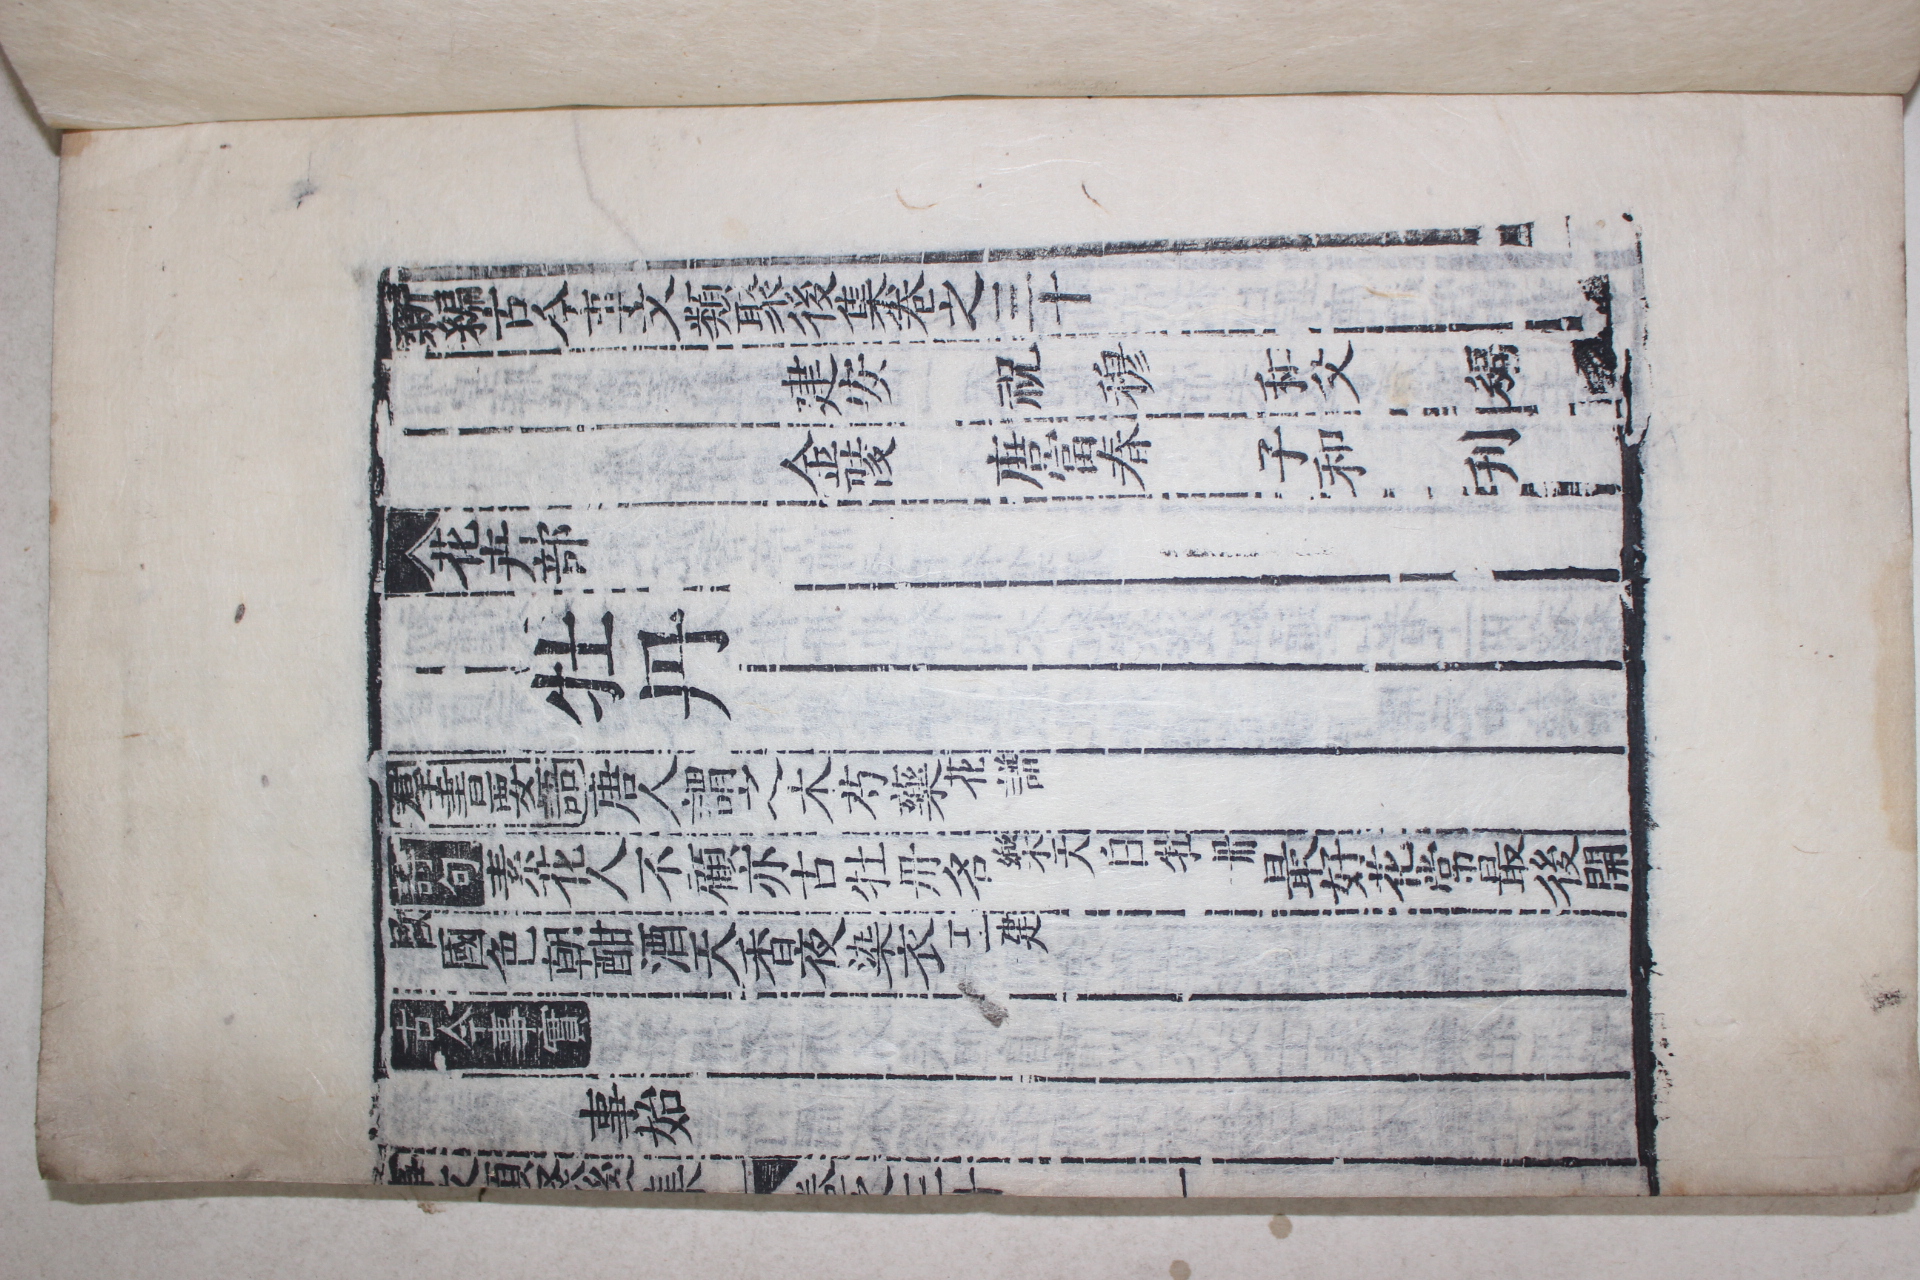 新編古今事文類聚後集卷之三十
建安 祝穆 和父 編
金陵 唐富春 子和 刊
花卉部
牡丹
群書要語 唐人謂之木芍藥花譜
詩句 素花人不顧亦占牡丹名樂天白牡丹 最好花當最後開
歐 國色朝酣酒天香夜染衣正建
古今事實
事始
事文類聚後集 卷之三十 一